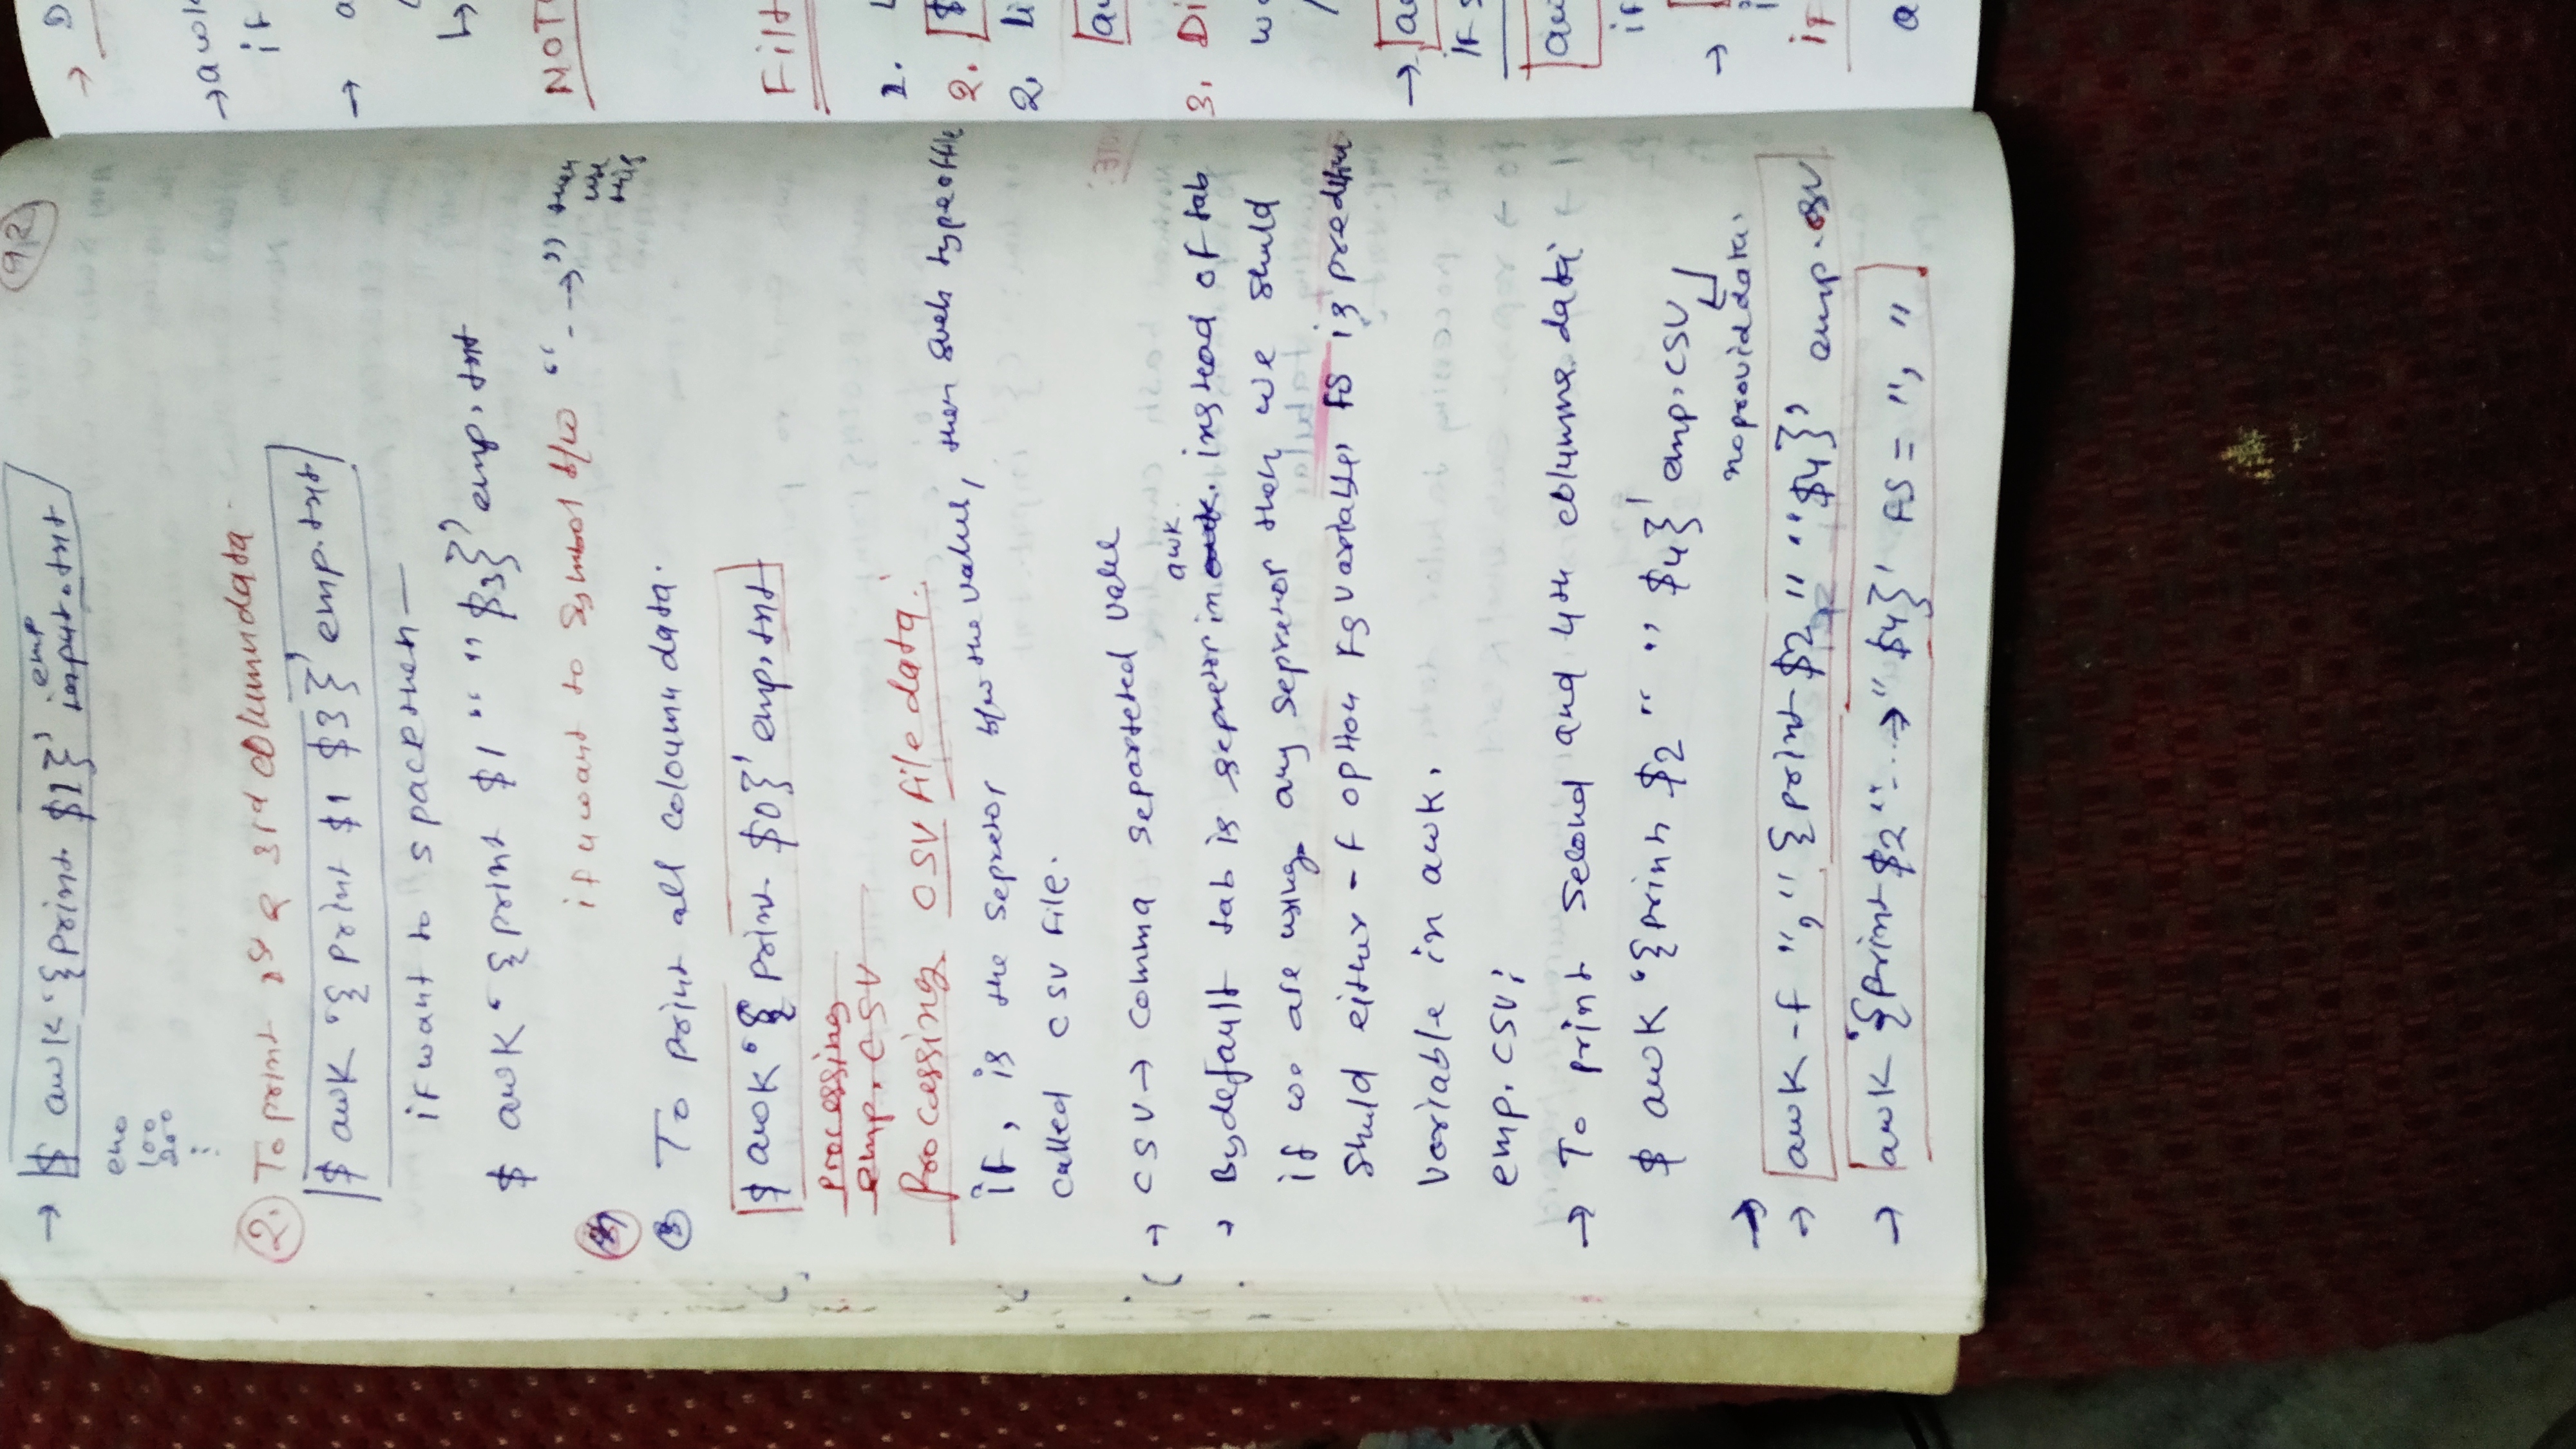 92
→ $ awk '{print $1}' emp input.txt
eno
100
200
⋮
2. To print 1st & 3rd column data
$ awk '{print $1 $3}' emp.txt
if want to space then —
$ awk '{print $1 " " $3}' emp.txt
if u want to symbol b/w "--→" then use this
3 To print all coloumn data.
$ awk '{print $0}' emp.txt
Processing
emp.CSV
Processing CSV file data:
if , is the sepretor b/w the value, then such type of file
called CSV file.
→ CSV → Comma separteted value
→ By default tab is sepretor in awk. instead of tab
if we are using any sepretor then we shuld
shuld either -f option FS variable, FS is predefine
variable in awk.
emp.CSV;
→ To print Second and 4th columns data
$ awk '{print $2 " " $4}' emp.CSV
no provid data.
→
→ awk -f "," {print $2 " " $4}' emp.csv
→ awk '{print $2 "--→" $4}' FS = ", "
→ D
→ awk
if
→ a
↳
NOT
Filt
1. L
2. $
2. li
aw
3. Di
we
→ aw
if s
aw
if
→
if
a